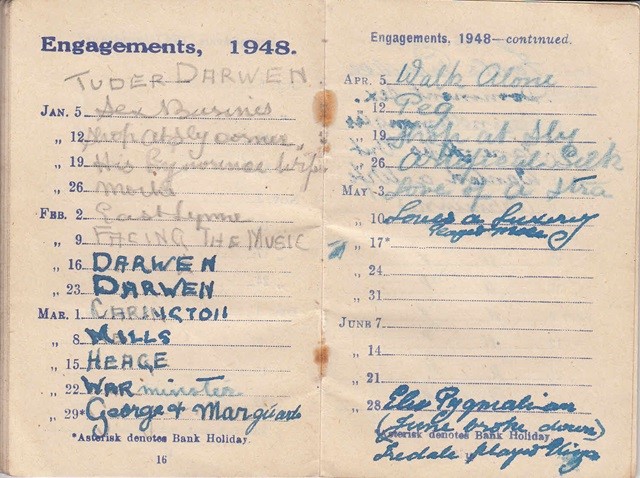 Engagements, 1948.
TUDER DARWEN
JAN. 5 Sex Busines
„ 12 Shop at Sly corner
„ 19 His
„ 26
FEB. 2 East Lynne
„ 9 FACING THE MUSIC
„ 16 DARWEN
„ 23 DARWEN
MAR. 1 CARINGTON
„ 8 MILLS
„ 15 HEAGE
„ 22 WARminster
„ 29* George & Marguarte
*Asterisk denotes Bank Holiday.
16
Engagements, 1948—continued.
APR. 5 Walk Alone
„ 12 Peg
„ 19 Shop at Sly
„ 26
MAY 3 Love of a Stra
„ 10 Love's a Luxury
„ 17*
„ 24
„ 31
JUNE 7
„ 14
„ 21
„ 28 Pygmalian
(June broke down)
*Asterisk denotes Bank Holiday.
played